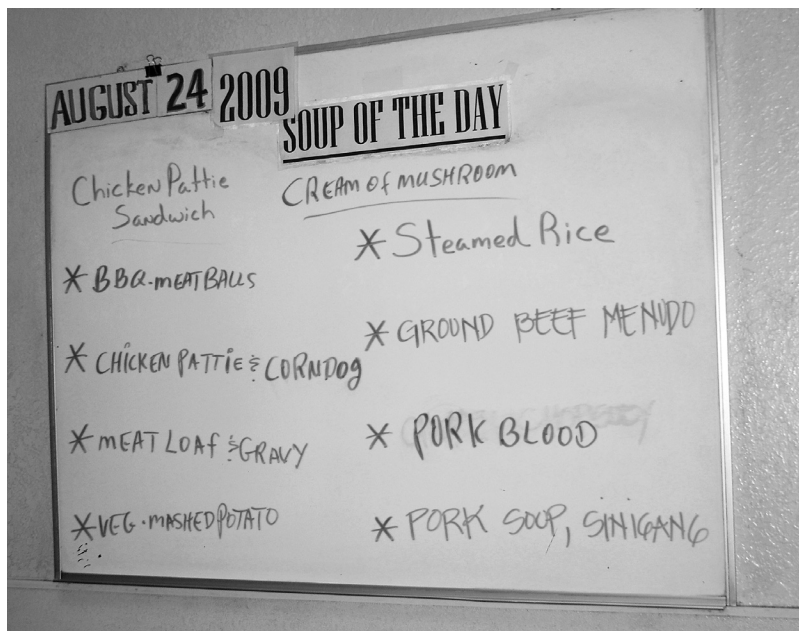 AUGUST 24 2009
SOUP OF THE DAY
Chicken Pattie
Sandwich
* BBQ.MEATBALLS
* CHICKEN PATTIE & CORNDOg
* MEAT LOAf & GRAVY
* VEG. MASHED POTATO
CREAM Of MUSHROOM
* Steamed Rice
* GROUND BEEF MENUDO
* PORK BLOOD
* PORK SOUP, SINIGANG